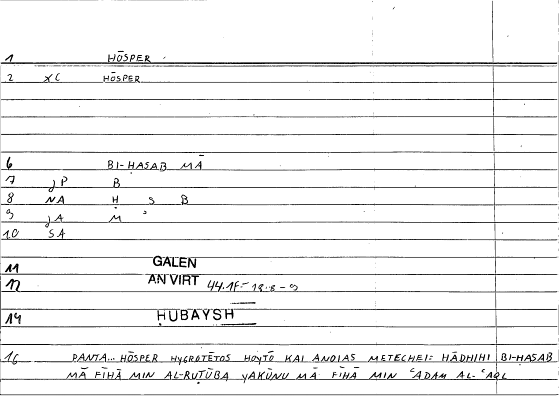 1 HŌSPER
2 XC HŌSPER
6 BI-HASAB MĀ
7 JP B
8 NA Ḥ S B
9 JA M ʾ
10 SA
11 GALEN
12 AN VIRT 44.1F
14 ḤUBAYSH
16 PANTA... HŌSPER HYGROTĒTOS HOYTŌ KAI ANOIAS METECHEI: HĀDHIHI BI-HASAB
MĀ FĪHĀ MIN AL-RUṬŪBA YAKŪNU MĀ FĪHĀ MIN ʿADAM AL-ʿAQL